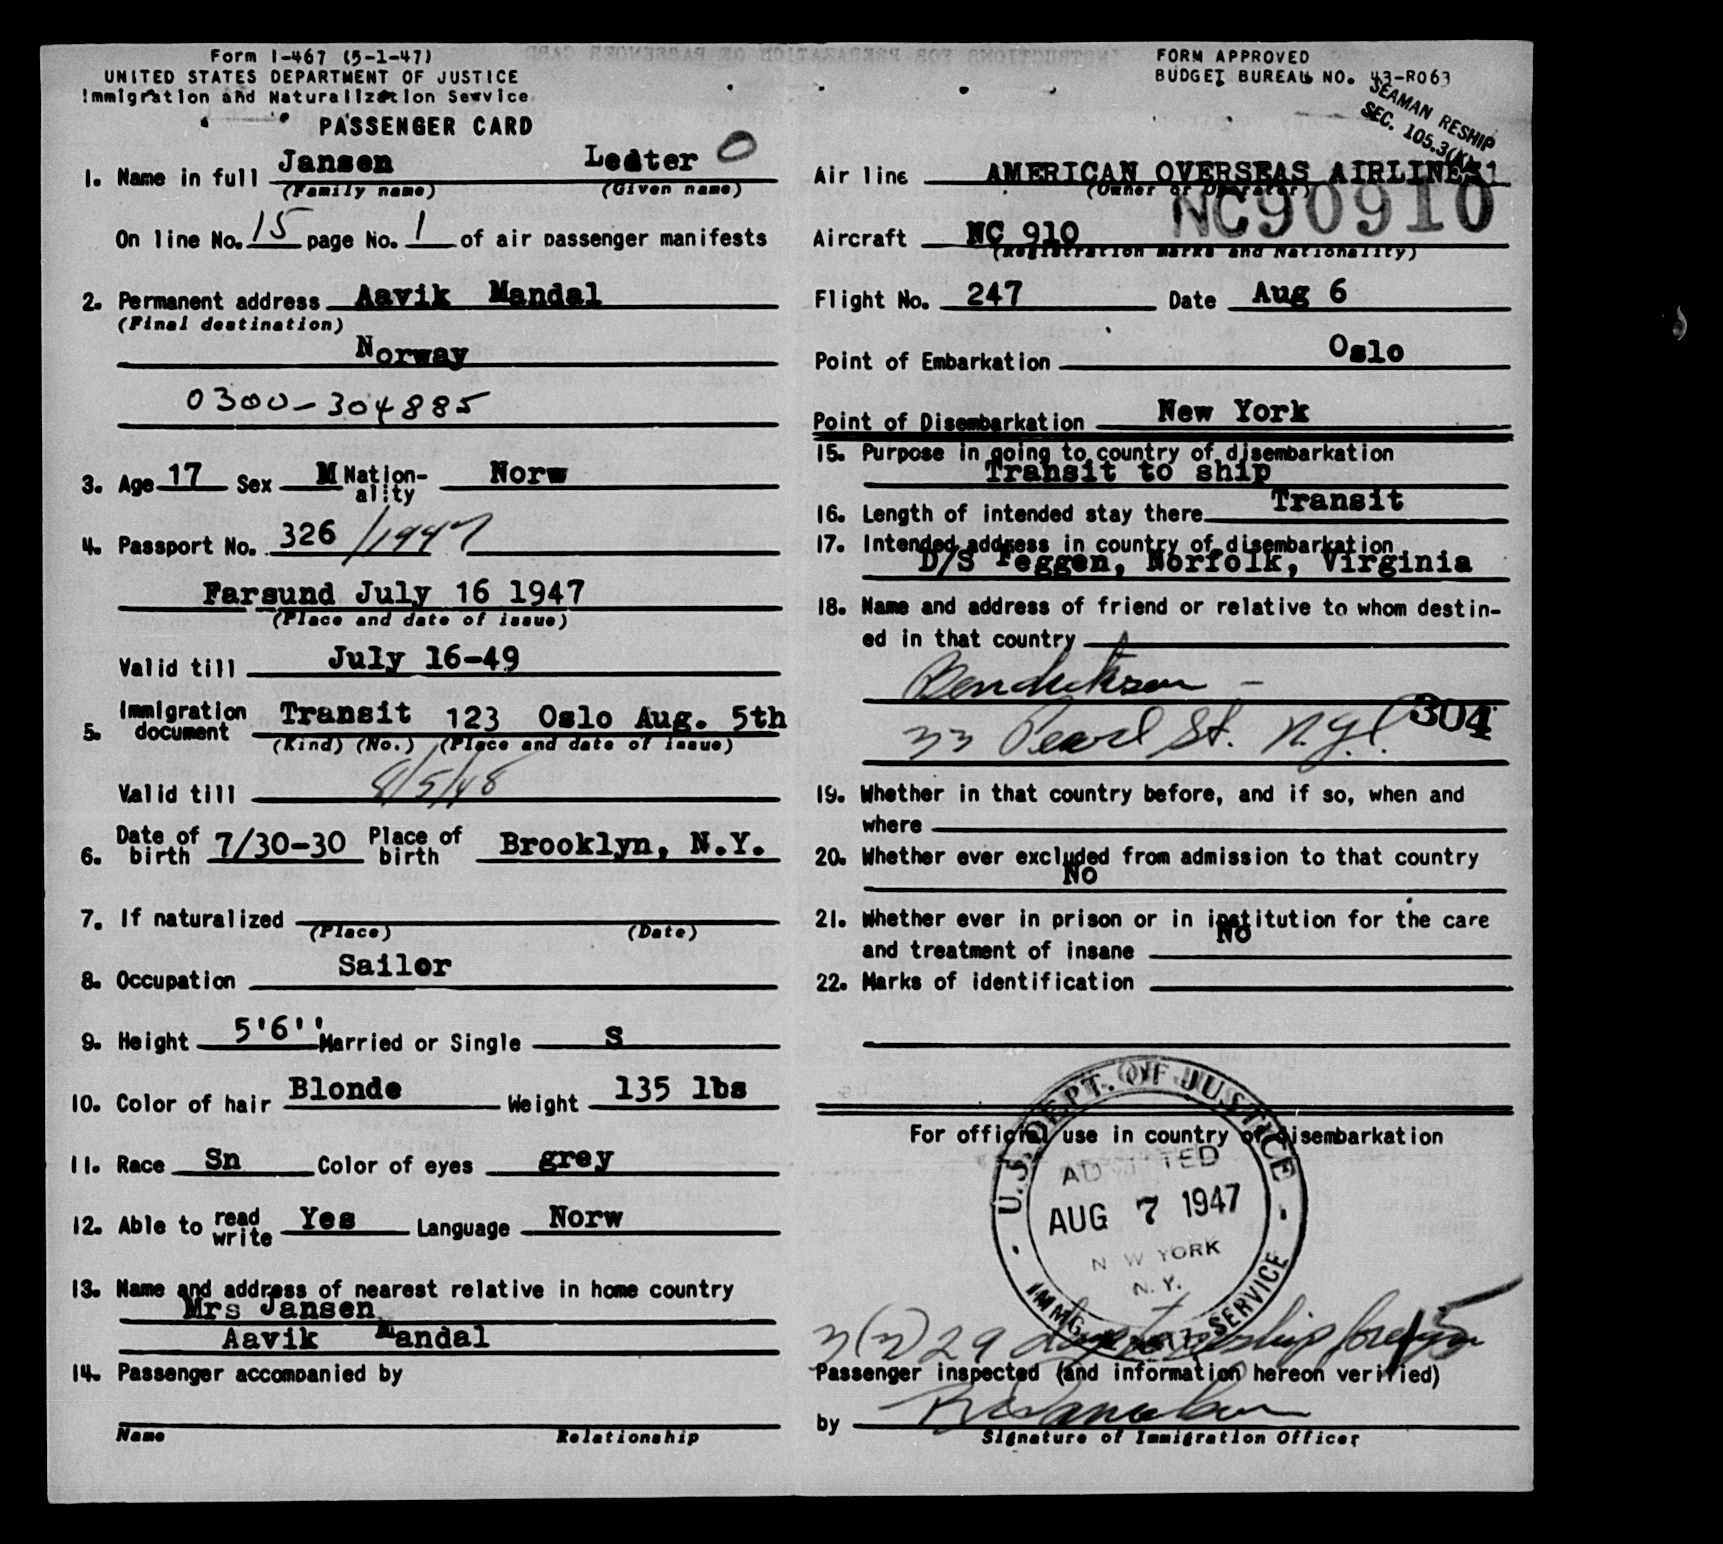 Form I-467 (5-1-47)
UNITED STATES DEPARTMENT OF JUSTICE
Immigration and Naturalization Service
PASSENGER CARD
1. Name in full Jansen Ledter O
(Family name) (Given name)
On line No. 15 page No. 1 of air passenger manifests
2. Permanent address Aavik Mandal
(Final destination)
Norway
0300-304885
3. Age 17 Sex M Nation-ality Norw
4. Passport No. 326 /1947
Farsund July 16 1947
(Place and date of issue)
Valid till July 16-49
5. Immigration document Transit 123 Oslo Aug. 5th
(Kind) (No.) (Place and date of issue)
Valid till 8/5/48
6. Date of birth 7/30-30 Place of birth Brooklyn, N.Y.
7. If naturalized
(Place) (Date)
8. Occupation Sailor
9. Height 5'6'' Married or Single S
10. Color of hair Blonde Weight 135 lbs
11. Race Sn Color of eyes grey
12. Able to read write Yes Language Norw
13. Name and address of nearest relative in home country
Mrs Jansen
Aavik Mandal
14. Passenger accompanied by
Name Relationship
FORM APPROVED
BUDGET BUREAU NO. 43-R063
SEAMAN RESHIP
SEC. 105.3(K)
Air line AMERICAN OVERSEAS AIRLINES
(Owner or Operator)
NC90910
Aircraft NC 910
(Registration marks and Nationality)
Flight No. 247 Date Aug 6
Point of Embarkation Oslo
Point of Disembarkation New York
15. Purpose in going to country of disembarkation
Transit to ship
16. Length of intended stay there Transit
17. Intended address in country of disembarkation
D/S Feggen, Norfolk, Virginia
18. Name and address of friend or relative to whom destin-
ed in that country
Bendiksen -
33 Pearl St. N.Y.C. 304
19. Whether in that country before, and if so, when and
where
20. Whether ever excluded from admission to that country
No
21. Whether ever in prison or in institution for the care
and treatment of insane No
22. Marks of identification
For official use in country of disembarkation
U.S. DEPT. OF JUSTICE
ADMITTED
AUG 7 1947
NEW YORK
N.Y.
IMMG. & NATZ. SERVICE
3(2) 29 days to reship foreign 15
Passenger inspected (and information hereon verified)
by
Signature of Immigration Officer